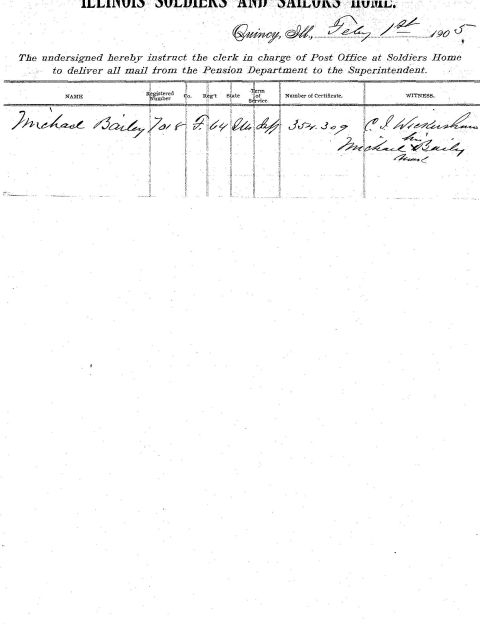 ILLINOIS SOLDIERS AND SAILORS HOME.
Quincy, Ill., Feby 1st 1905.
The undersigned hereby instruct the clerk in charge of Post Office at Soldiers Home
to deliver all mail from the Pension Department to the Superintendent.
NAME Registered Number Co. Reg't State Term of Service Number of Certificate. WITNESS.
Michael Bailey 7018 F. 64 Ills 354.309 C. J. Wickersham
his
Michael x Baily
mark